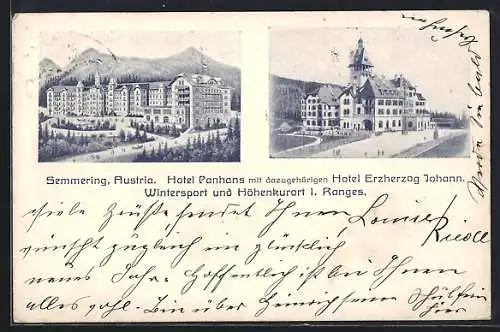 Semmering, Austria. Hotel Panhans mit dazugehörigen Hotel Erzherzog Johann.
Wintersport und Höhenkurort I. Ranges.
Viele Grüße sendet Ihnen Louise
Riedl
wünscht zugleich ein glücklich
neues Jahr. Hoffentlich ist bei Ihnen
alles wohl. Bin über
hier